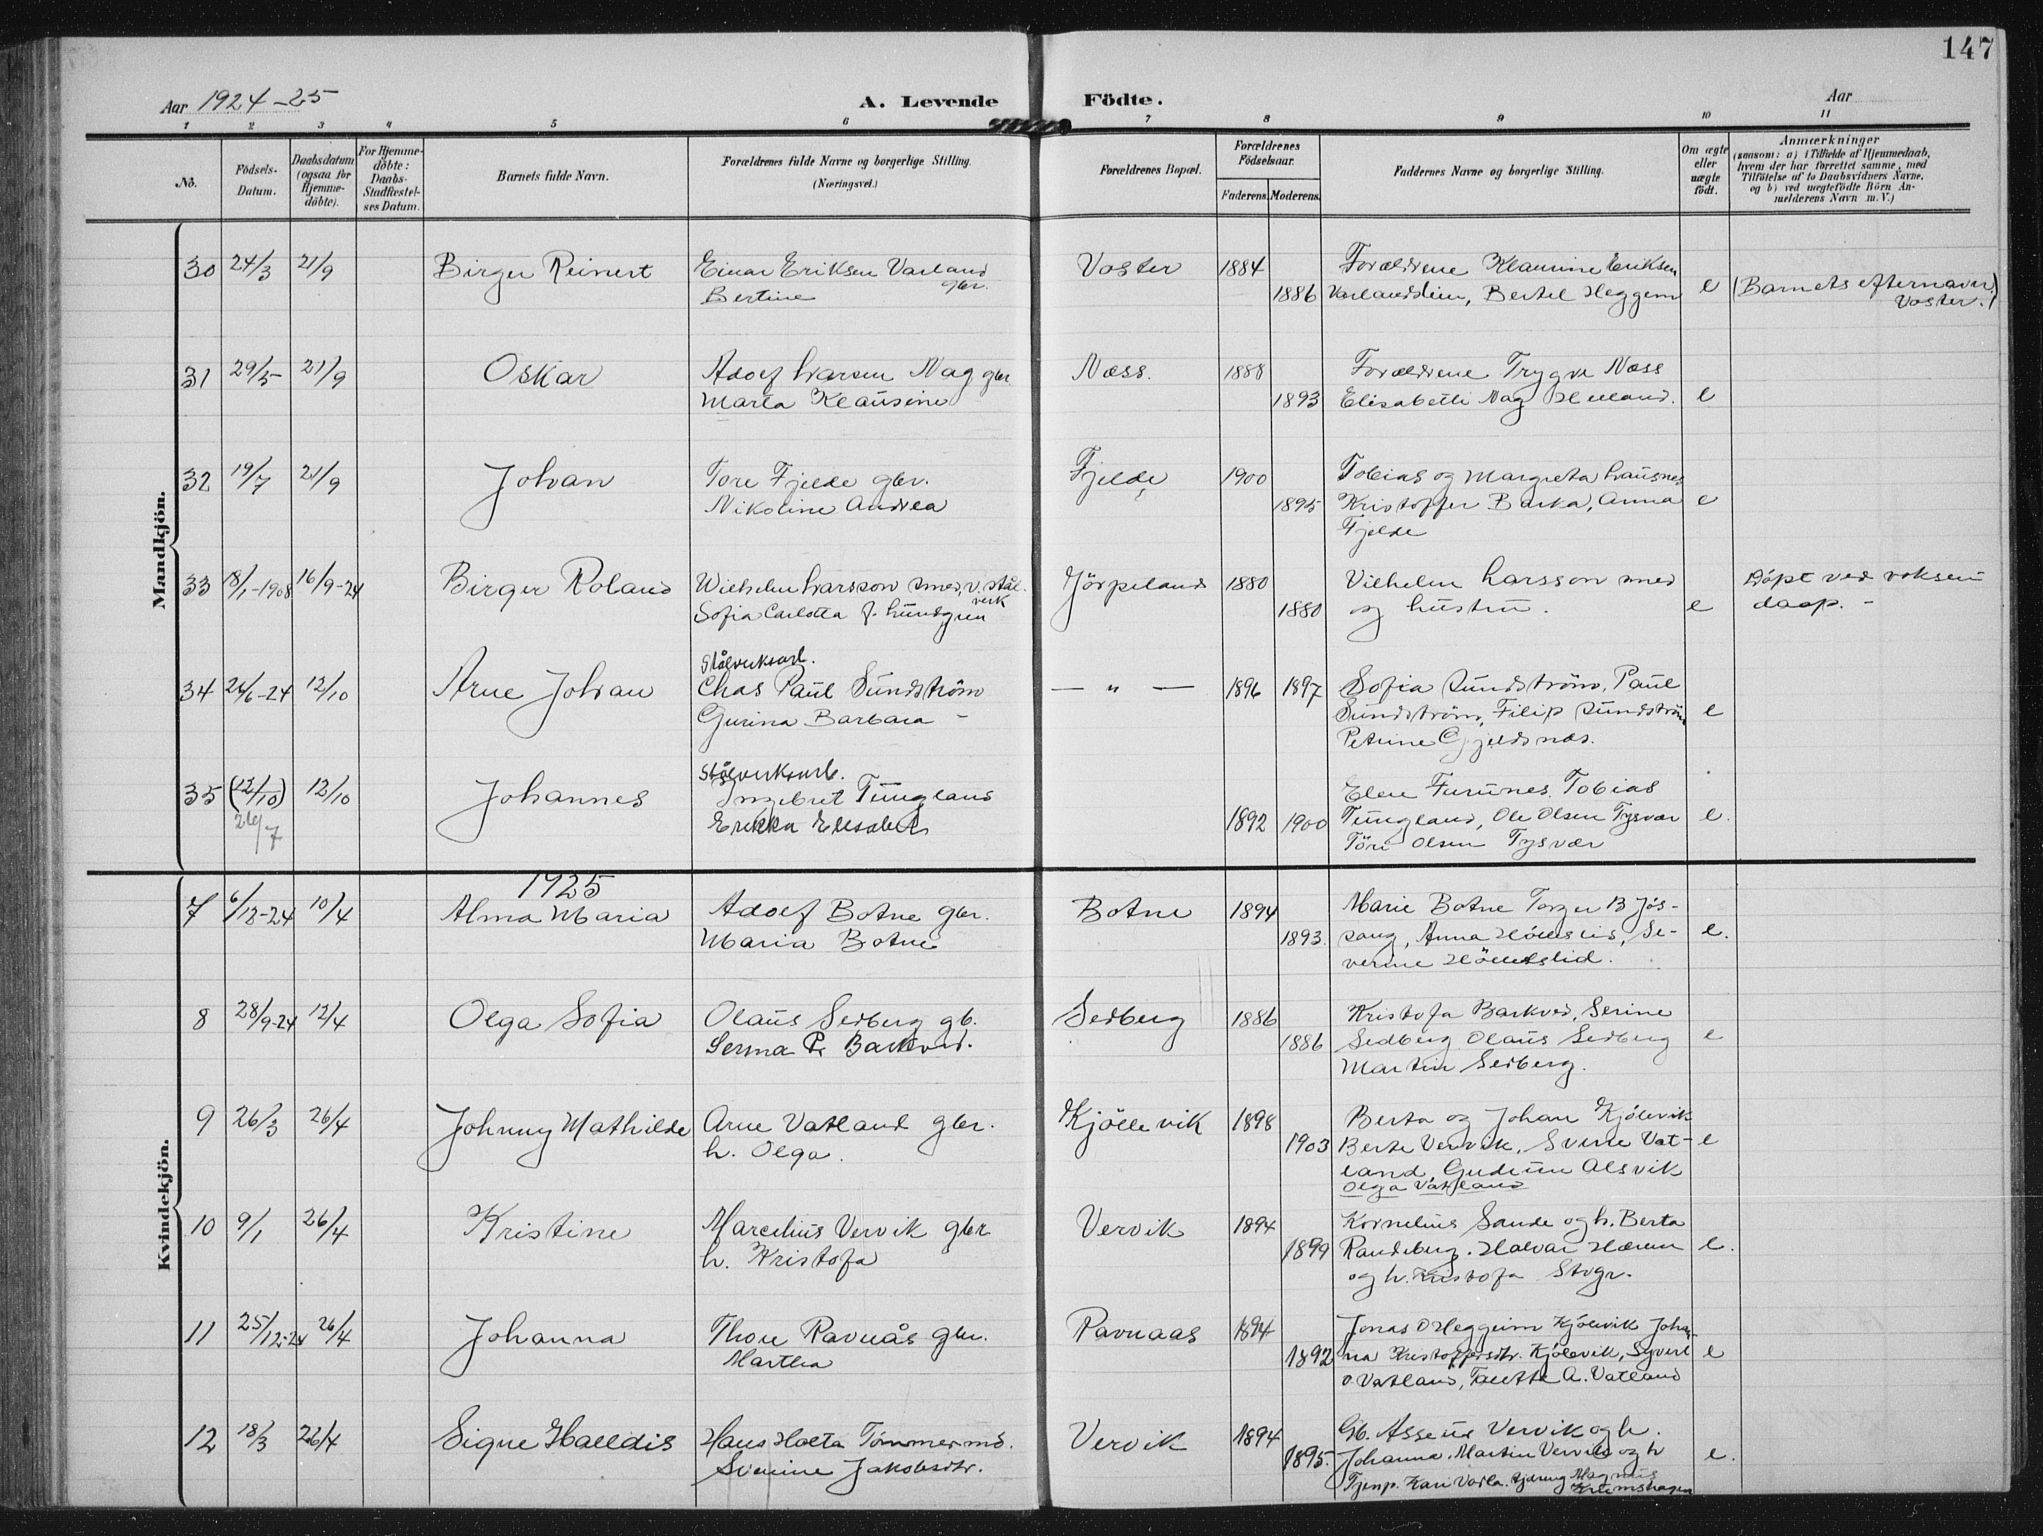 147
Aar 1924-25 A. Levende Födte. Aar
1 2 3 4 5 6 7 8 9 10 11
No. Födsels-Datum. Daabsdatum (ogsaa for Hjemmedöbte). For Hjemmedöbte: Daabs-Stadfæstelses Datum. Barnets fulde Navn. Forældrenes fulde Navne og borgerlige Stilling. (Næringsvei.) Forældrenes Bopæl. Forældrenes Födselsaar. Faderens. Moderens. Faddernes Navne og borgerlige Stilling. Om ægte eller uægte födt. Anmærkninger
(saasom: a) i Tilfælde af Hjemmedaab, hvem der har forrettet samme, med Tilföielse af to Daabsvidners Navne, og b) ved uægtefödte Börn Anmelderens Navn m. V.)
Mandkjön.
30 24/3 21/9 Birger Reinert Einar Eriksen Varland gbr. Voster 1884 Forældrene Klausine Eriksen
Bertine 1886 Bertel Heggem e (Barnets efternavn
Voster.)
31 29/5 21/9 Oskar Adolf Larsen Nag gbr. Næss. 1888 Forældrene Trygve Næss
Marta Klausine 1893 Elisabeth Nag e
32 19/7 21/9 Johan Tore Fjelde gbr. Fjelde 1900 Tobias og Margreta
Nikoline Andrea 1895 Kristoffer Barka, Anna e
Fjelde
33 18/1-1908 16/9-24 Birger Roland Wilhelm Larsson smed v. stål-
verk Jörpeland 1880 Vilhelm Larsson smed Döpt ved voksen
Sofia Carlotta f. Lundgren 1880 og hustru. e daap. -
Stålverksarb.
34 26/6-24 12/10 Arne Johan Chas Paul Sundström — " — 1896 1897 Sofia Sundström, Paul
Gurina Barbara - Sundström, Filip Sundström e
Petrine Gjeldsnæs.
Stålverksarb.
35 (12/10) 12/10 Johannes Ingebret Tungland Elen Furunes Tobias
26/7 Erikka Elisabet 1892 1900 Tungland, Ole Olsen Tysvær e.
Töri Olsen Tysvær
Kvindekjön.
1925
7 6/12-24 10/4 Alma Maria Adolf Botne gbr. Botne 1894 Marie Botne Torger B Jös-
Maria Botne 1893. pang, Anna Se- e.
verine
8 28/9-24 12/4 Olga Sofia Olaus Sedberg gb. Sedberg 1886 Kristofa Barkved, Serine
Serina P. Barkved. 1886 Sedberg Olaus Sedberg e
Martin Sedberg.
9 26/3 26/4 Johnny Mathilde Arne Vatland gbr. Kjöllevik 1898 Berta og Johan Kjölevik
h. Olga. 1903 Berte Vervik, Sverre Vat- e
land, Gudrun Alsvik
Olga Vatland
10 9/1 26/4 Kristine Marcelius Vervik gbr Vervik 1894 Kornelius Sande og h. Berta
h. Kristofa 1899 Randeberg. Halvar Hærem e.
og h. Kristofa Stvgr.
11 25/12-24 26/4 Johanna Thore Ravnås gbr. Ravnaas 1894 Jonas O Heggeim Kjölevik Johan-
Martha 1892 na Kristoffersdtr. Kjölevik, Syvert e
O. Vatland, A. Vatland
12 18/3 26/4 Signe Halldis Hans Holta Tömmermd. Vervik 1894 Gb. Assers Vervik og h.
Jakobsdtr. 1895. Johanna. Martin Vervik og h e.
Tjenp. Kari Magnus